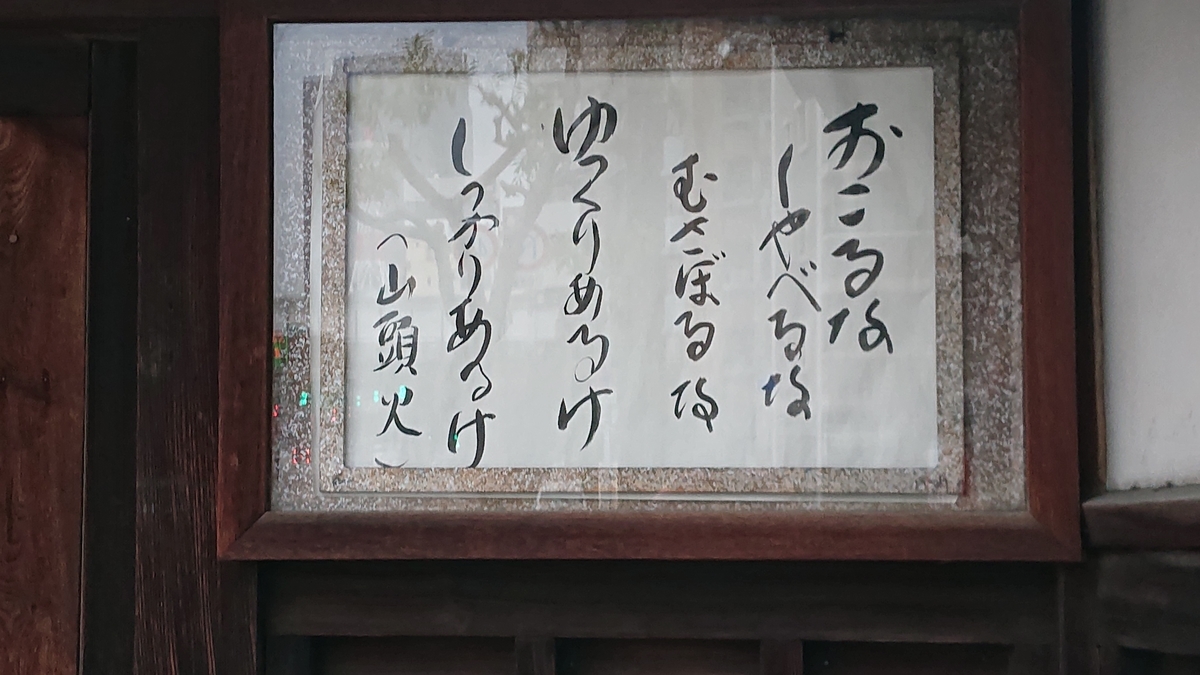 おこるな
しやべるな
むさぼるな
ゆつくりあるけ
しつかりあるけ
（山頭火）